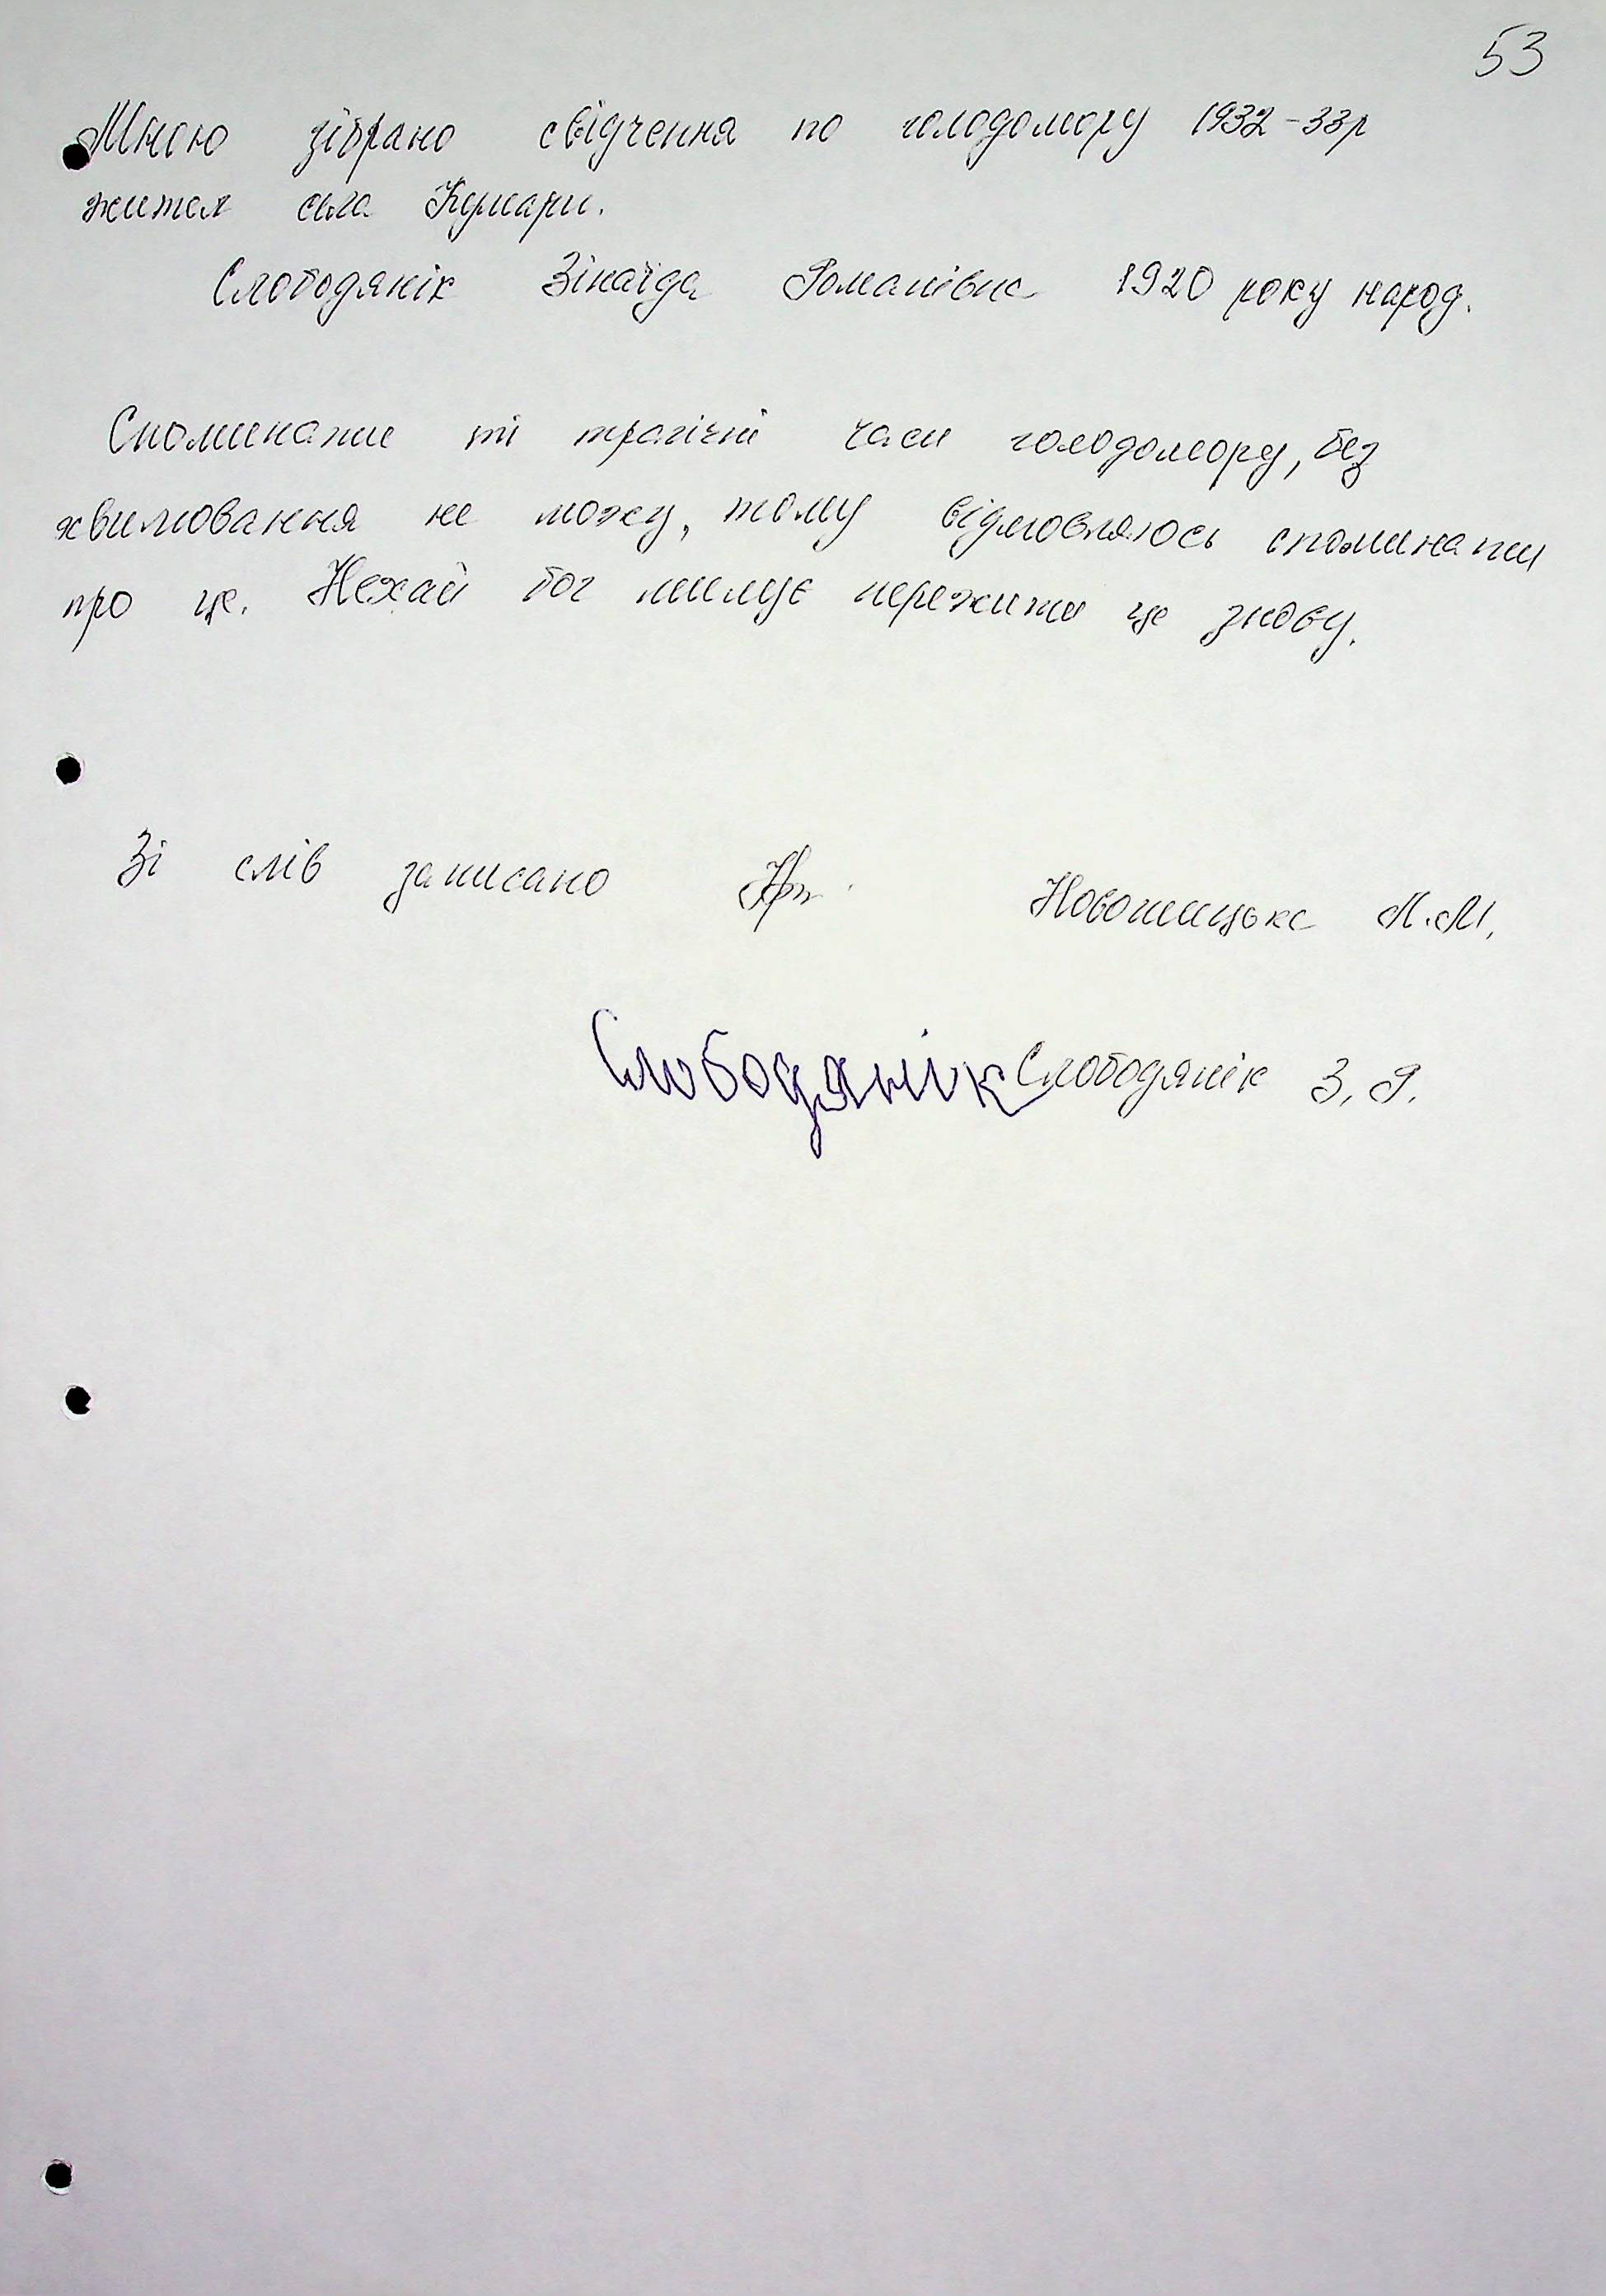 53
Мною зібрано свідчення по голодомору 1932-33р
жител села Кумари.
Слободянік Зінаїда Романівна 1920 року народ.
Споминати ті трагічні часи голодомору, без
хвилювання не можу, тому відмовляюсь споминати
про це. Нехай бог милує пережити це знову.
Зі слів записано Новошицька М.М.
Слободянік Слободянік З.Р.